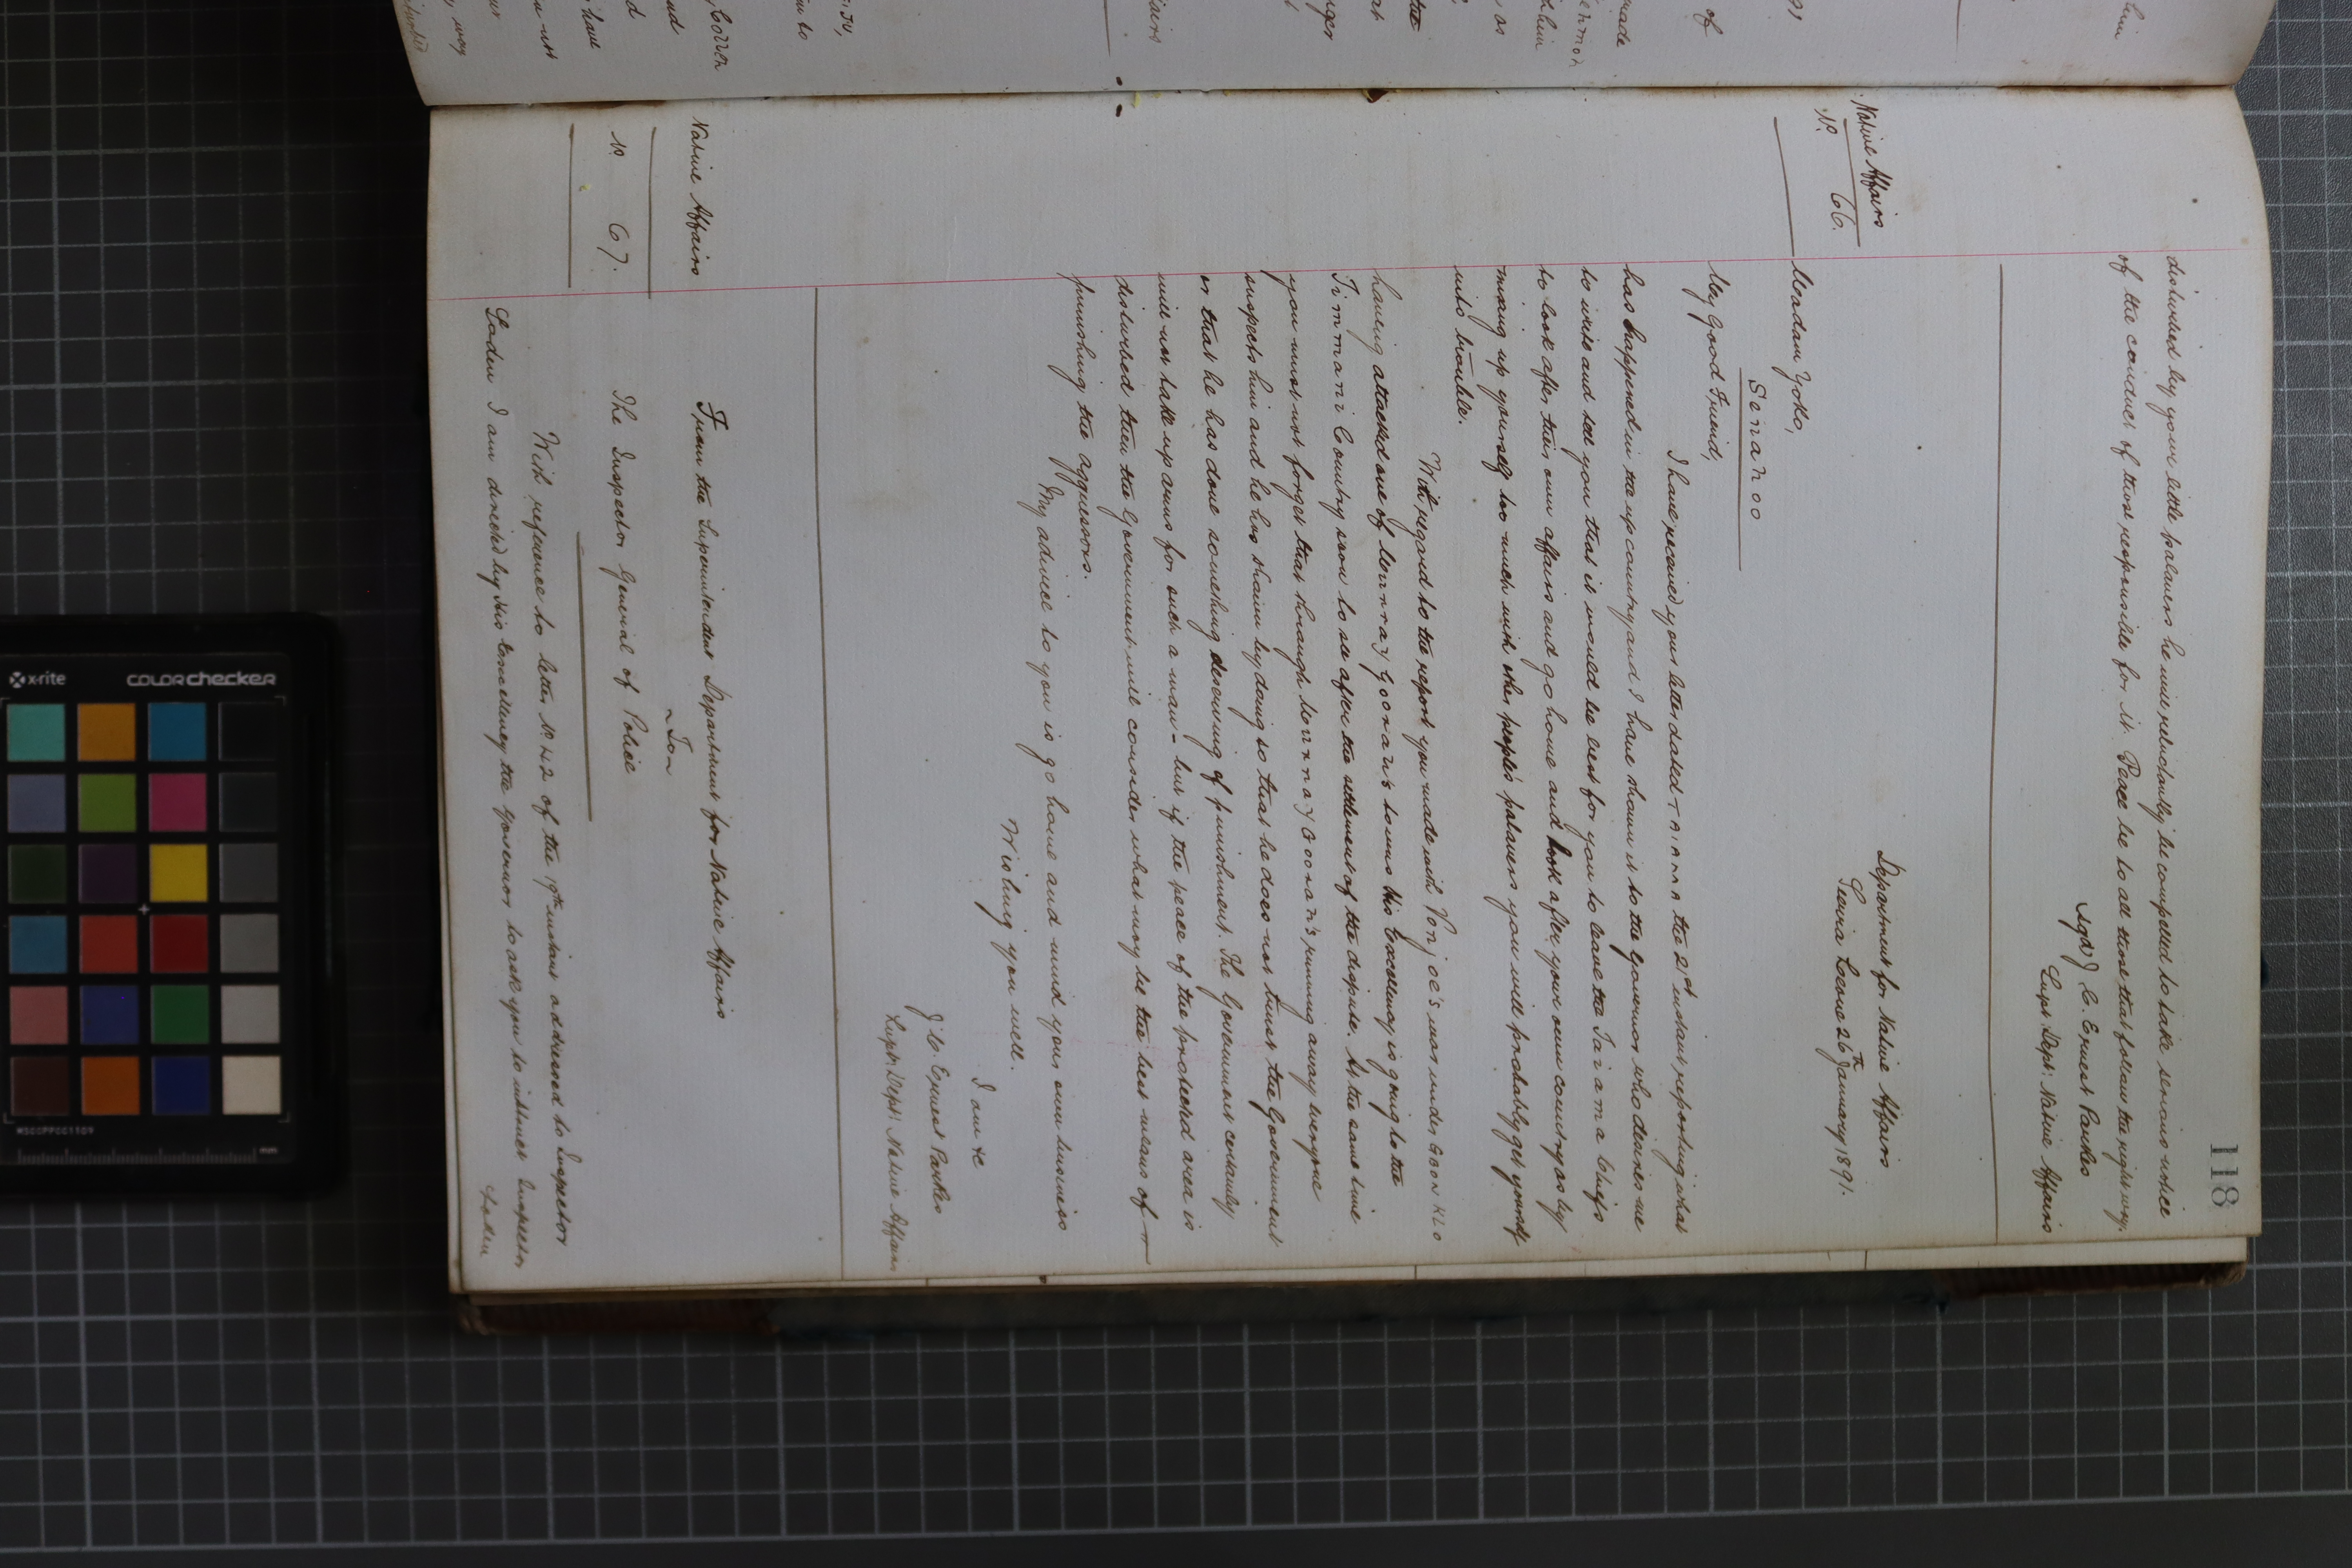 118
disturbed by your little palavers he will reluctantly be compelled to take serious notice
of the conduct of those responsible for it. Peace be to all those that follow the right way.
(sgd) J. C. Ernest Parkes
Supt. Dept: Native Affairs
Native Affairs
No. 66.
Department for Native Affairs
Sierra Leone 26th January 1891.
Madam Yoko,
Senahoo
My Good Friend,
I have received your letter dated Taiama the 21st instant reporting what
has happened in the up country and I have shown it to the Governor who desires me
to write and tell you that it would be best for you to leave the Taiama Chiefs
to look after their own affairs and go home and look after your own country as by
mixing up yourself too much with other people's palavers you will probably get yourself
into trouble.
With regard to the report you made with Vonjoe's war under
having attacked one of towns His Excellency is going to the
Timmani Country soon to see after the settlement of the dispute. At the same time
you must not forget that through running away everyone
suspects him and he has shown by doing so that he does not trust the Government
or that he has done something deserving of punishment. The Government certainly
will not take up arms for such a man - but if the peace of the protected area is
disturbed then the Government will consider what may be the best means of
punishing the aggressors.
My advice to you is go home and mind your own business
Wishing you well.
I am &c
J. C. Ernest Parkes
Supt: Dept: Native Affairs
Native Affairs
No. 67.
From the Superintendent Department for Native Affairs
To
The Inspector General of Police
With reference to letter No. 42 of the 19th instant addressed to Inspector
Loden I am directed by His Excellency the Governor to ask you to instruct Inspector
Loden
x-rite
colorchecker
MSCCPPCC1109
mm